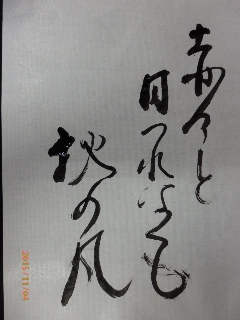 赤々と
日はつれなくも
秋の風
2015/11/04